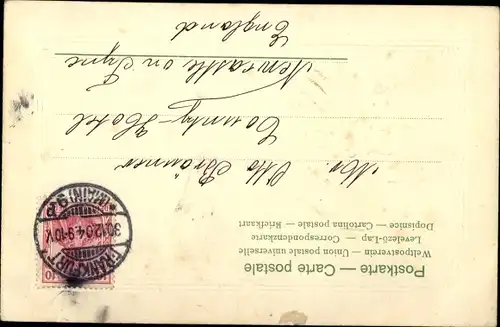 Postkarte — Carte postale
Weltpostverein — Union postale universelle
Levelező-Lap — Correspondenzkarte
Dopisnice — Cartolina postale — Briefkaart
Mr. Otto Brönner
County-Hotel
Newcastle on Tyne
England
FRANKFURT
30.12.04.9-10V.
(MAIN) 9
10